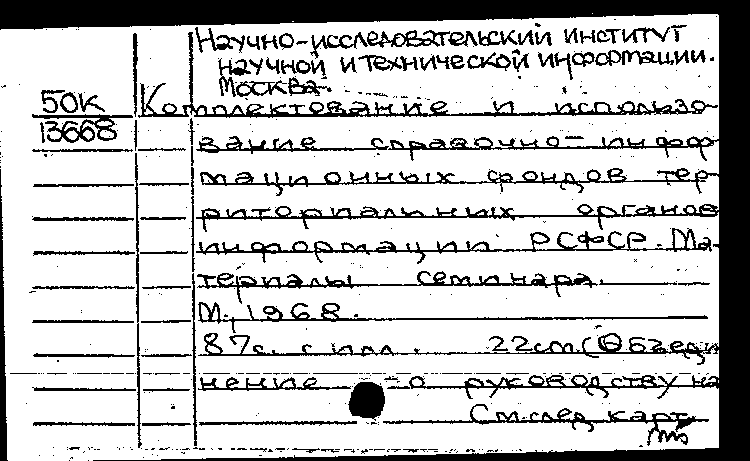 Научно-исследовательский институт
научной и технической информации.
Москва.
50К Комплектование и использо-
13668 вание справочно-инфор-
мационных фондов тер-
риториальных органов
информации РСФСР. Ма-
териалы семинара.
М., 1968.
87с. с илл. 22см. (Объеди
нение по руководству на
См. след. карт.